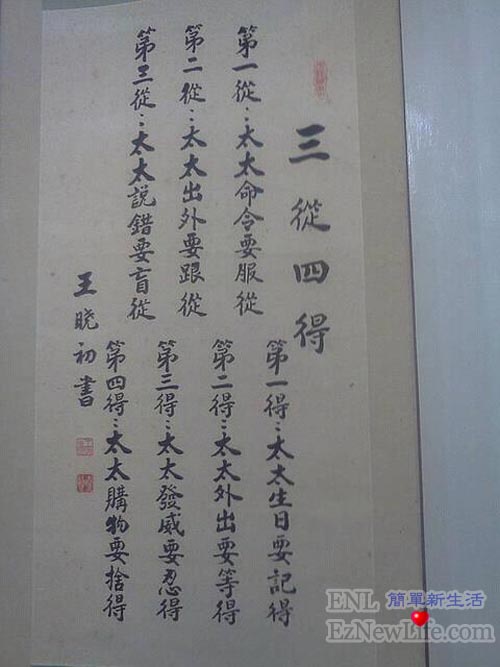 三從四得
第一從：太太命令要服從
第二從：太太出外要跟從
第三從：太太說錯要盲從
第一得：太太生日要記得
第二得：太太外出要等得
第三得：太太發威要忍得
第四得：太太購物要捨得
王晓初書
ENL 簡單新生活
EzNewLife.com